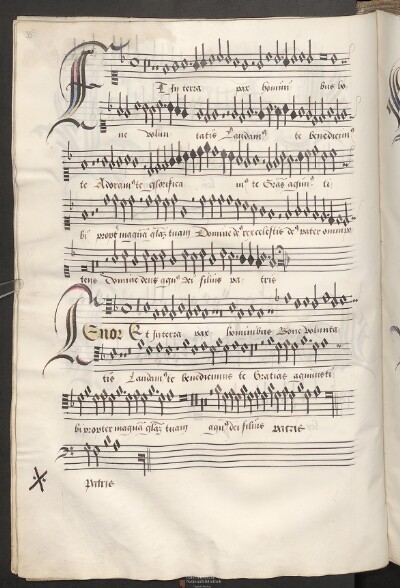 Et In terra pax homini bus bo
ne volun tatis Laudamꝰ te benedicimꝰ
te Adoramꝰ te glorifica mꝰ te Grãs agimꝰ ti
bi propt magnã glaʒ tuam Domine dꝰ rex celestis dꝰ pater omnipo
tens Domine deus agnꝰ dei filius pa tris
Tenor Et In terra pax hominibus Bone volunta
tis Laudamꝰ te benedicimus te Gratias agimus ti
bi propter magnã glaʒ tuam agnꝰ dei filius patris
patris